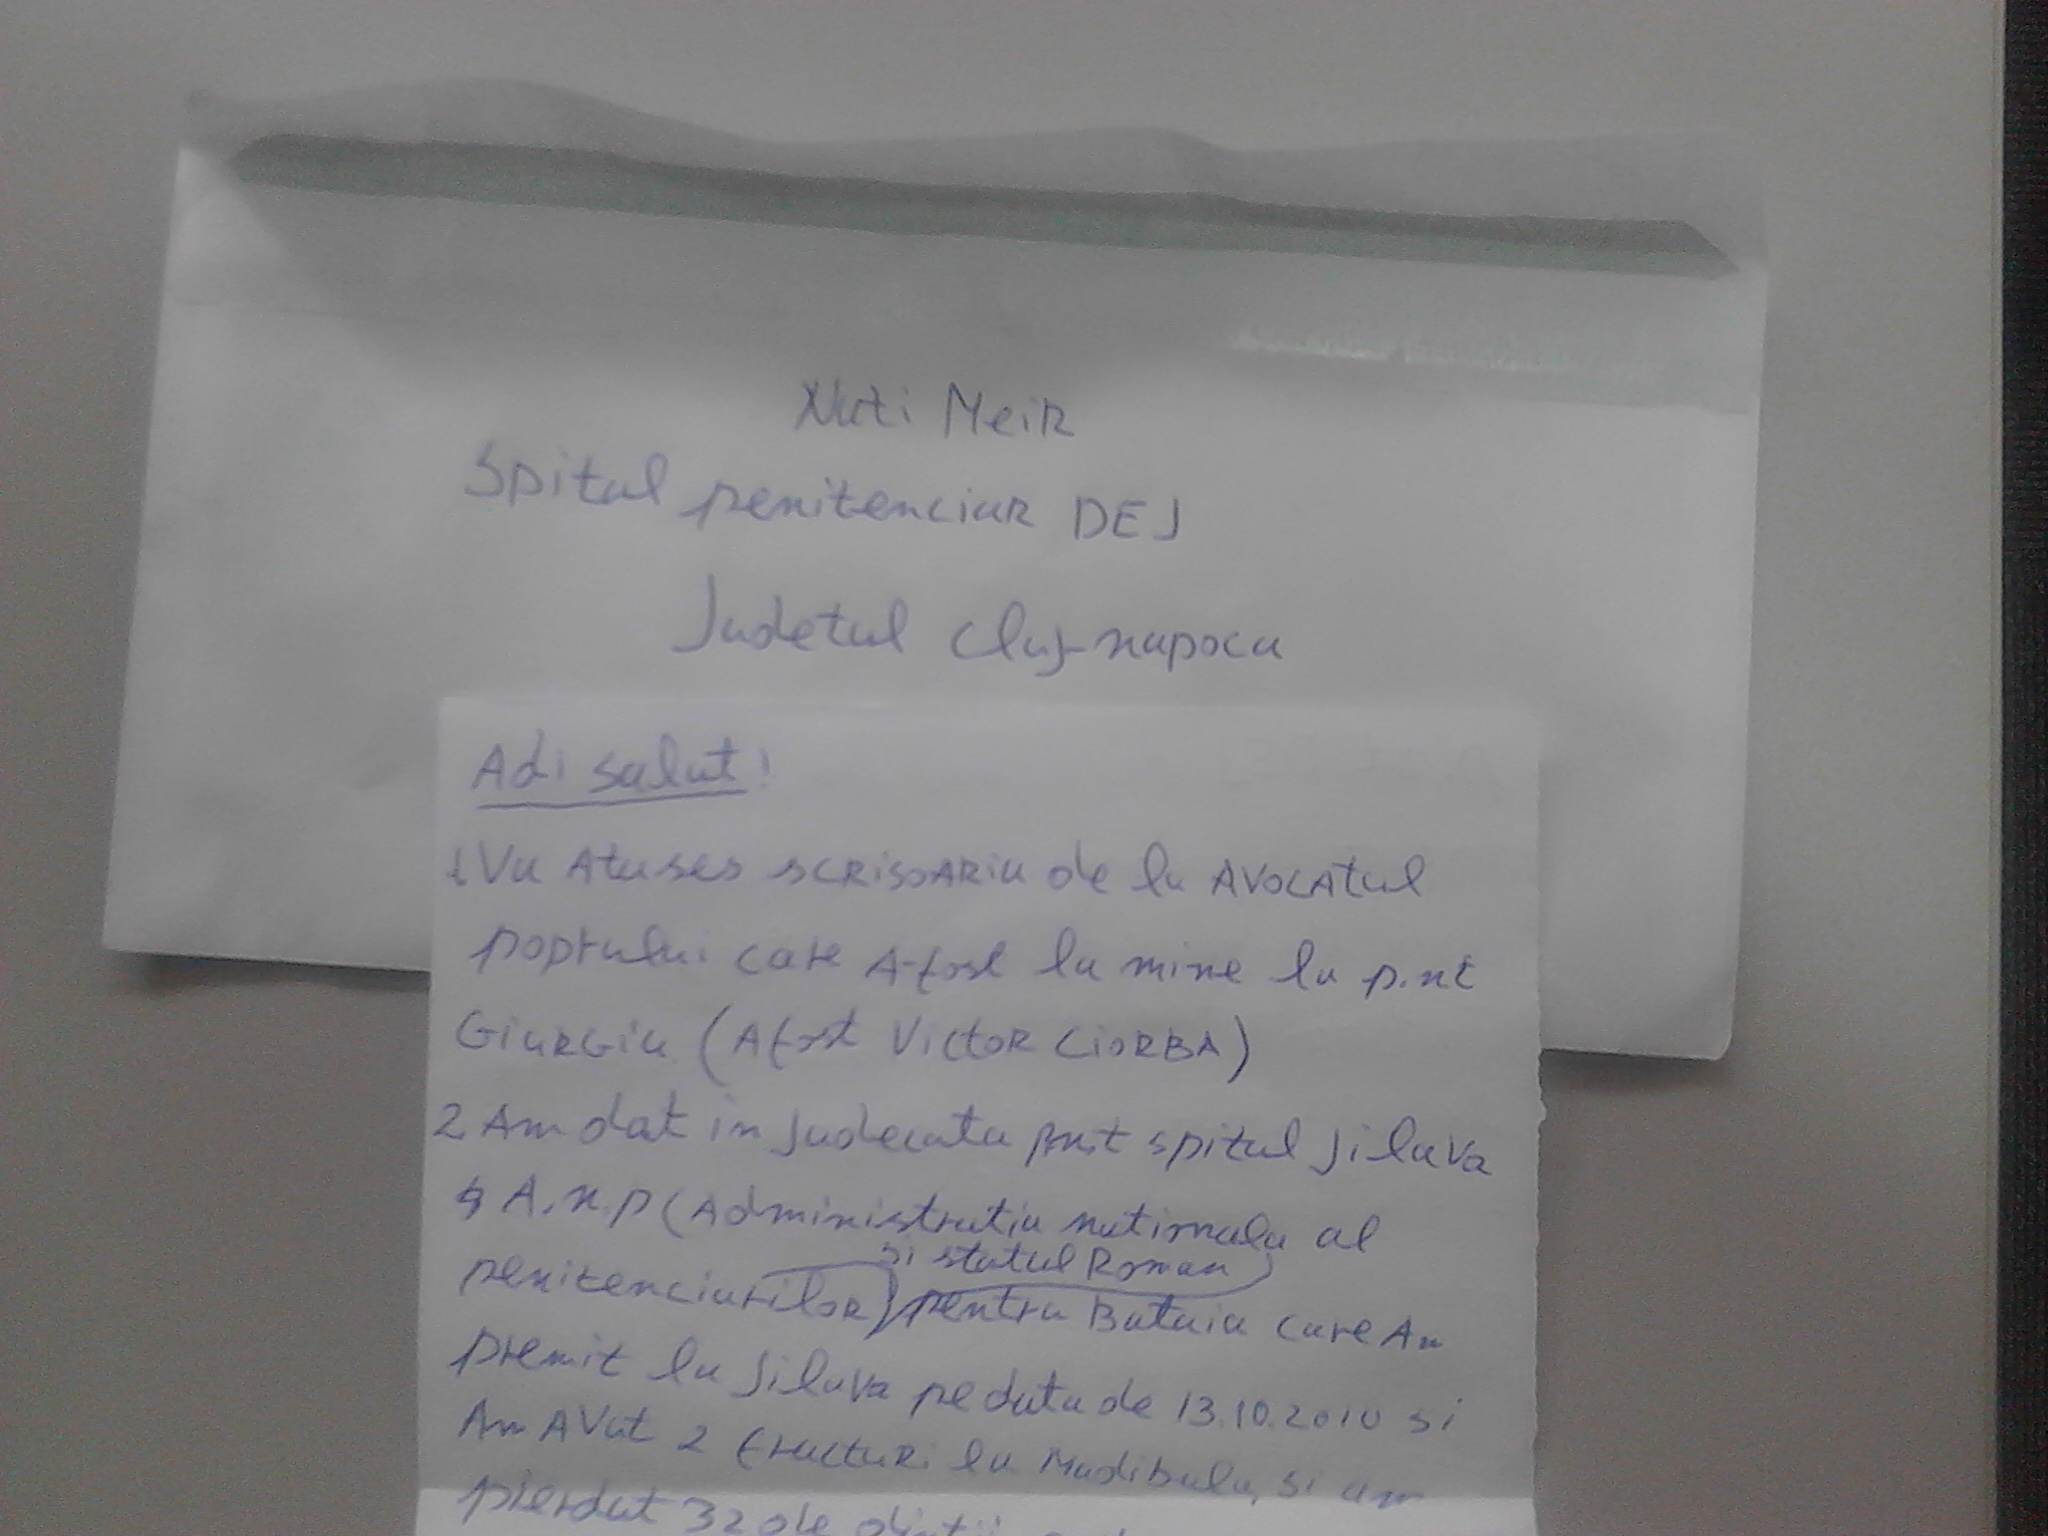 Nuti Meir
Spital penitenciar DEJ
Judetul Cluj-napoca
Adi salut!
1 Va Atases scrisoaria de la Avocatul
poprului care A-fost la mine la p.nt
Giurgiu (A fost Victor Ciorba)
2 Am dat in judecata pnt spital jilava
A.n.p (Administratia nationala al
si statul Roman
penitenciarilor) pentru Bataia care Am
premit la jilava pe data de 13.10.2010 si
Am AVut 2 fracturi la Madibula, si am
pierdut 32 de dintii